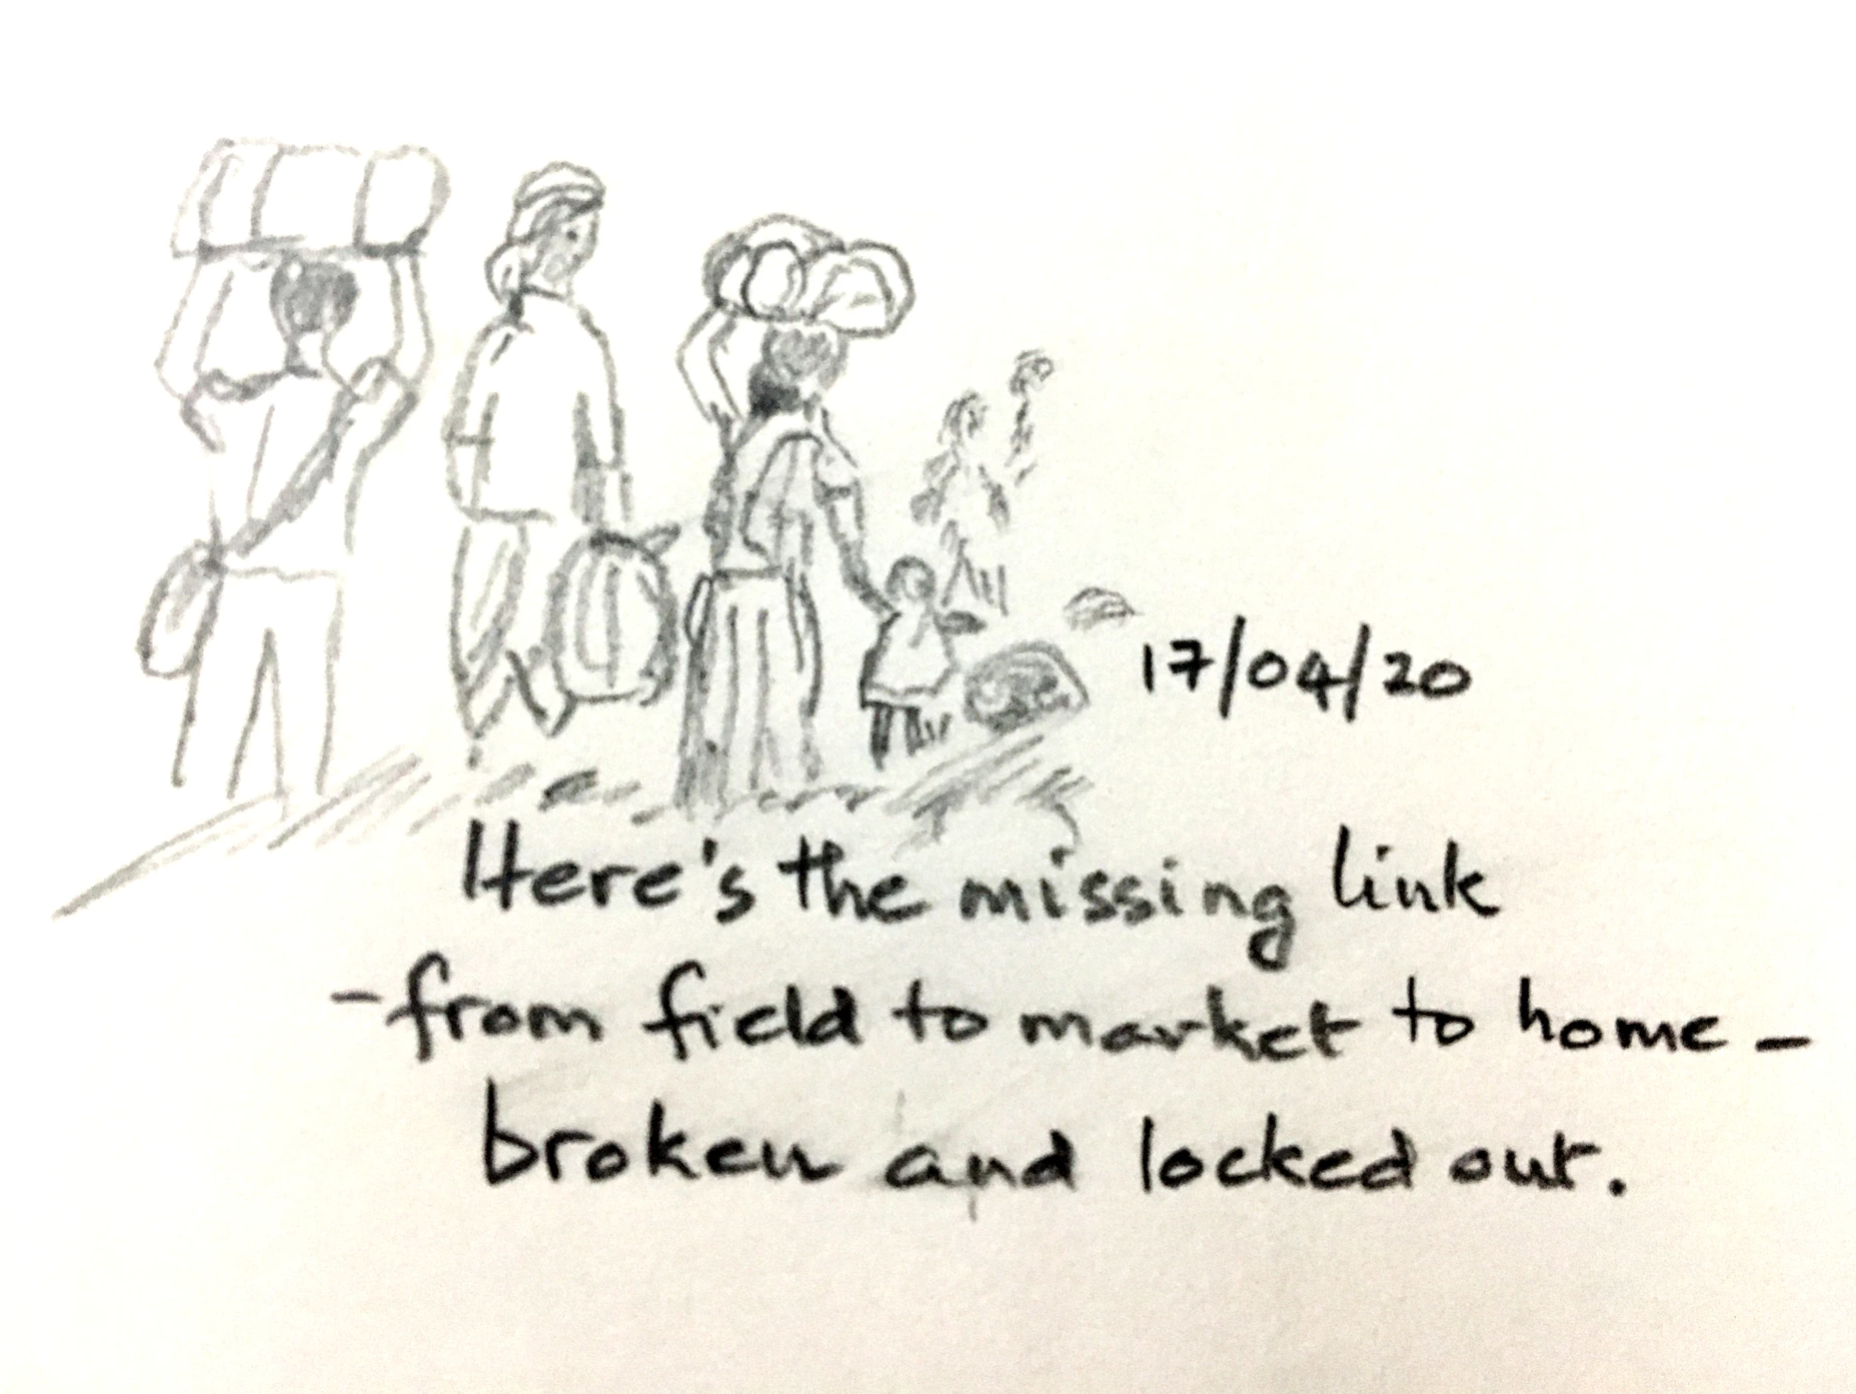 17/04/20
Here's the missing link
-from field to market to home-
broken and locked out.